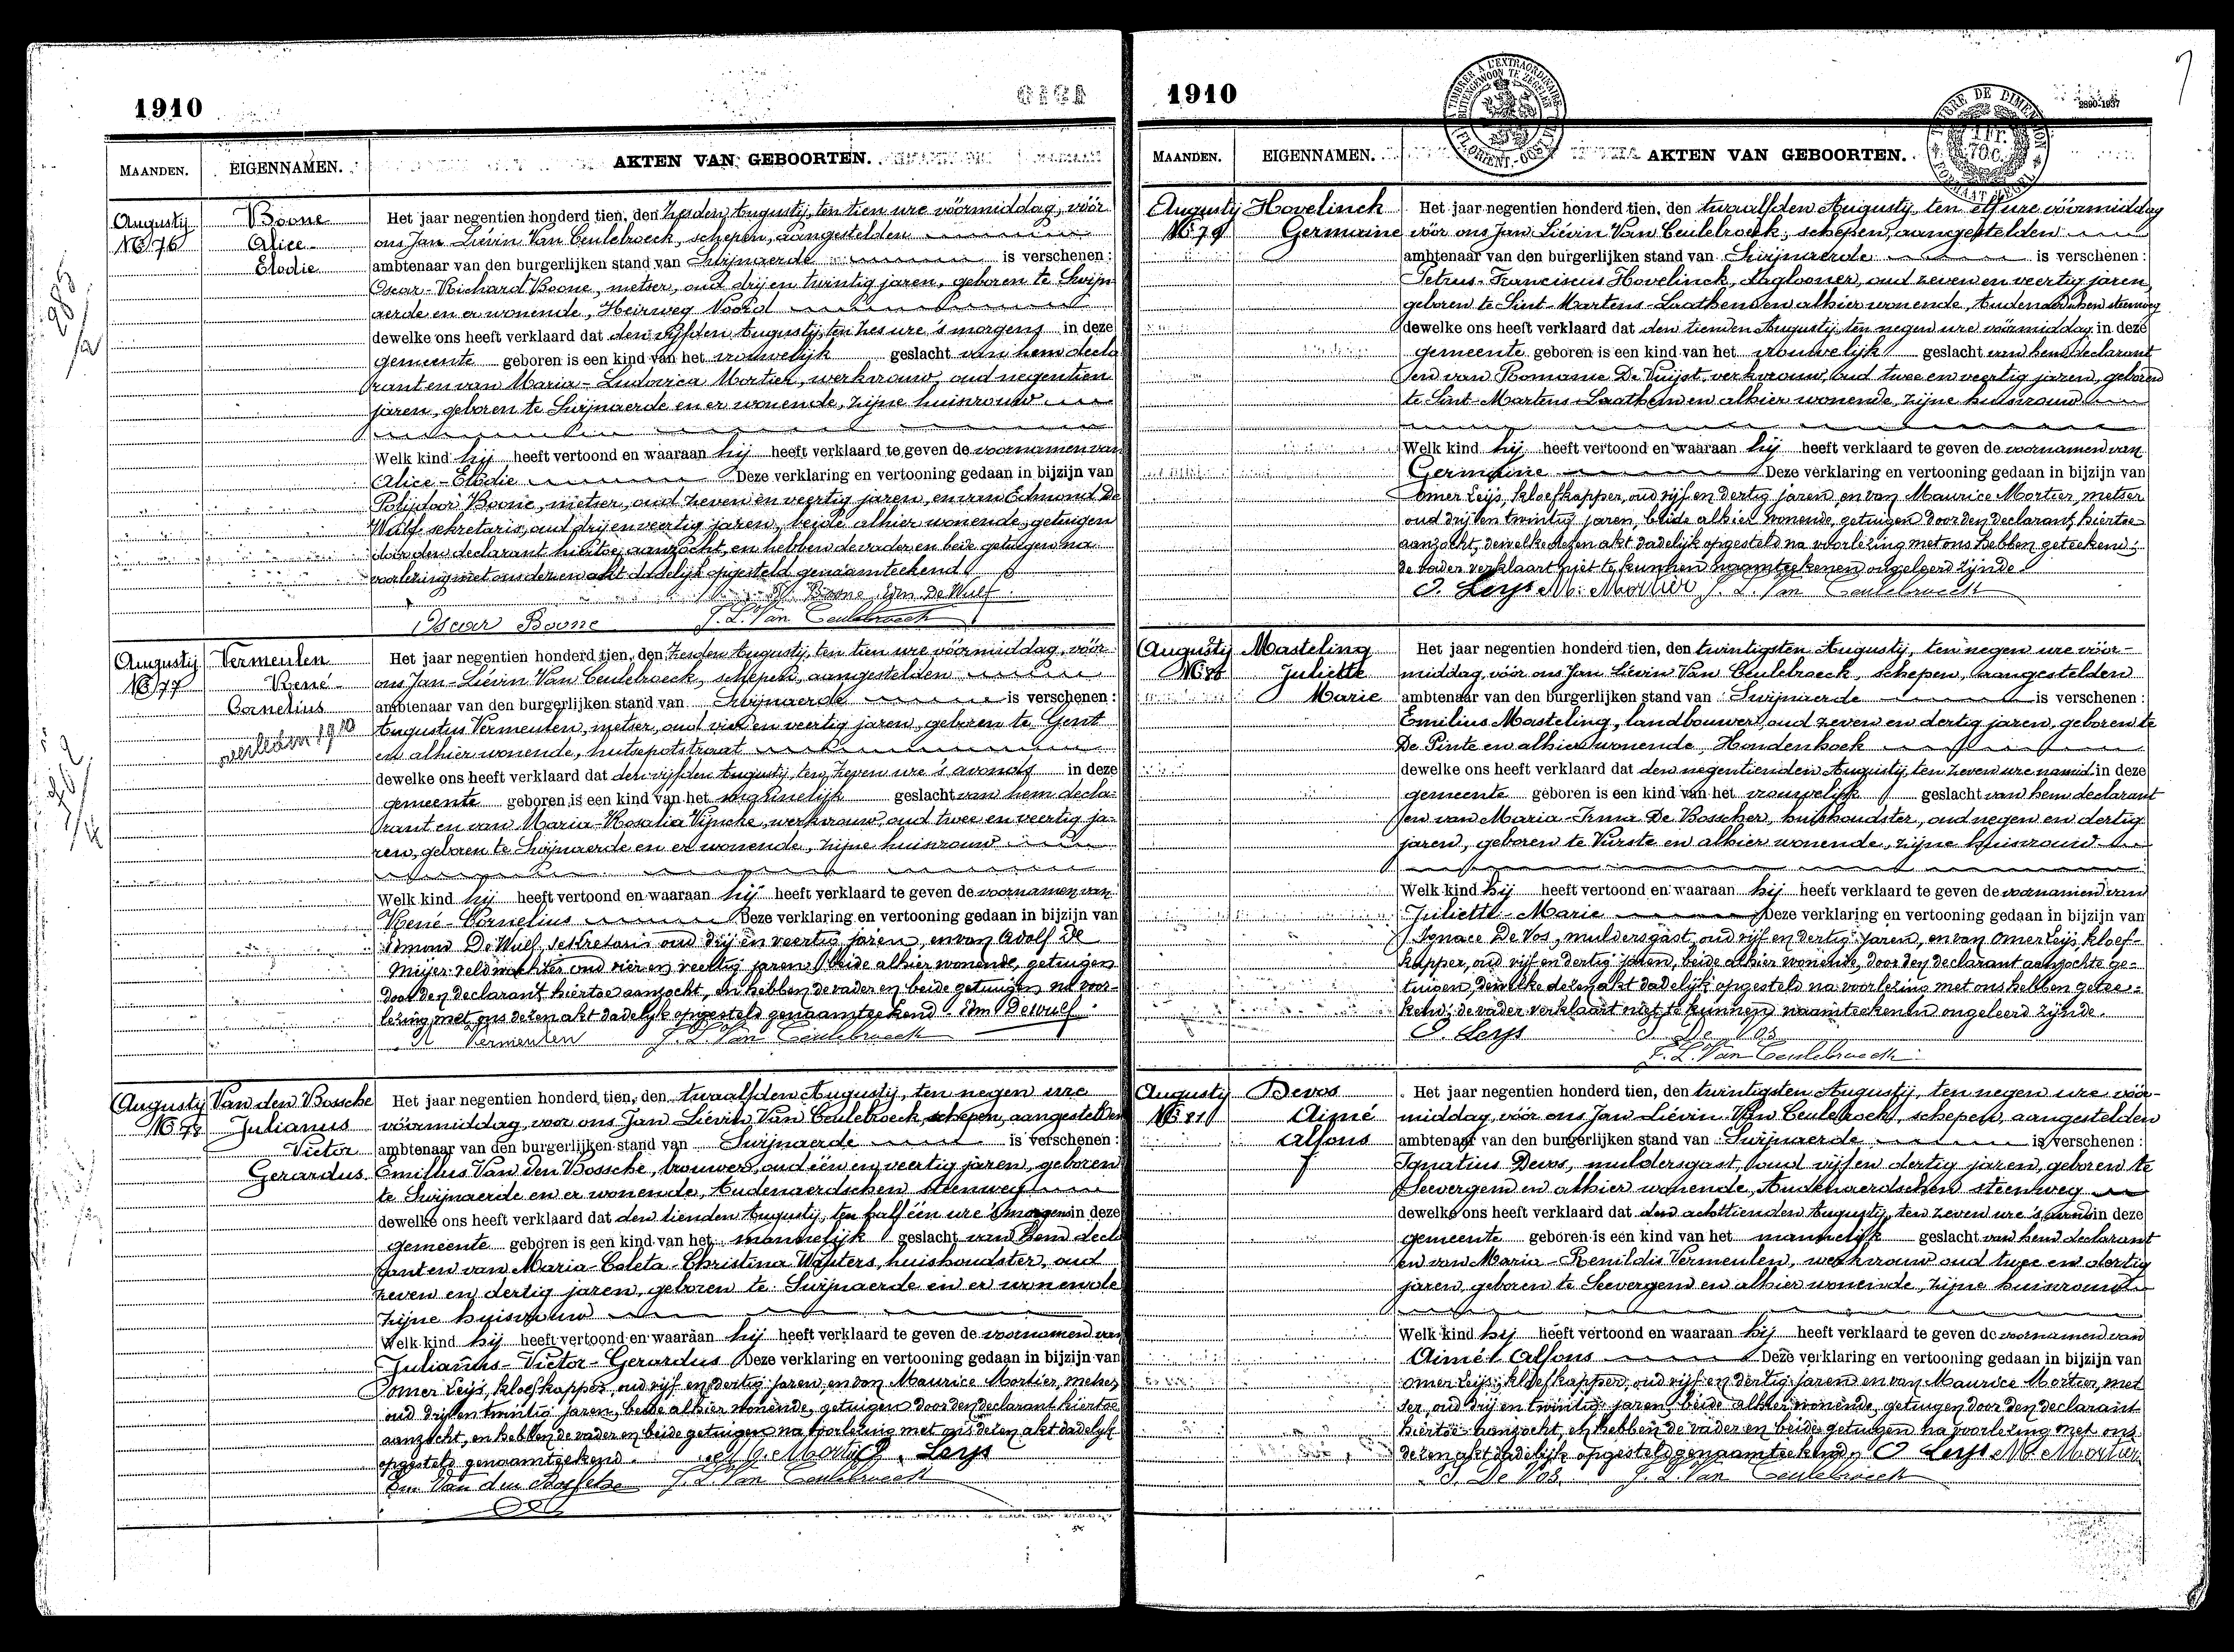 1910
MAANDEN.
EIGENNAMEN.
AKTEN VAN GEBOORTEN.
Augustij
No 76
Boone
Alice
Elodie
Het jaar negentien honderd tien, den zesden Augustij, ten tien ure vóórmiddag, vóór
ons Jan Liévin Van Ceulebroeck, schepen, aangestelden
ambtenaar van den burgerlijken stand van Swijnaerde is verschenen:
Oscar-Richard Boone, metser, oud drij en twintig jaren, geboren te Swijn
aerde en er wonende, Heirweg Noord
dewelke ons heeft verklaard dat den vijfden Augustij, ten zes ure 's morgens in deze
gemeente geboren is een kind van het vrouwelijk geslacht van hem decla
rant en van Maria-Ludovica Mortier, werkvrouw, oud negentien
jaren, geboren te Swijnaerde en er wonende, zijne huisvrouw
Welk kind hij heeft vertoond en waaraan hij heeft verklaard te geven de voornamen van
Alice-Elodie Deze verklaring en vertooning gedaan in bijzijn van
Polijdoor Boone, metser, oud zeven en veertig jaren, en van Edmond De
Wulf sekretaris, oud drij en veertig jaren, beide alhier wonende, getuigen
door den declarant hiertoe aanzocht, en hebben de vader en beide getuigen na
voorlezing met ons dezen akt dadelijk opgesteld genaamteekend
Boone Edm De Wulf
Oscar Boone J. L. Van Ceulebroeck
Augustij
No 77
Vermeulen
René
Cornelius
overleden 1910
Het jaar negentien honderd tien, den zesden Augustij, ten tien ure vóórmiddag, vóór
ons Jan-Liévin Van Ceulebroeck, schepen, aangestelden
ambtenaar van den burgerlijken stand van Swijnaerde is verschenen:
Augustus Vermeulen, metser, oud vier en veertig jaren, geboren te Gent
en alhier wonende, hutsepotstraat
dewelke ons heeft verklaard dat den vijfden Augustij, ten zeven ure 's avonds in deze
gemeente geboren is een kind van het mannelijk geslacht van hem decla-
rant en van Maria-Rosalia Vijncke, werkvrouw, oud twee en veertig ja-
ren, geboren te Swijnaerde en er wonende, zijne huisvrouw
Welk kind hij heeft vertoond en waaraan hij heeft verklaard te geven de voornamen van
René-Cornelius Deze verklaring en vertooning gedaan in bijzijn van
Edmond De Wulf, sekretaris oud drij en veertig jaren, en van Adolf De
Meijer veldwachter oud vier en veertig jaren, beide alhier wonende, getuigen
door den declarant hiertoe aanzocht, en hebben de vader en beide getuigen na voor-
lezing met ons dezen akt dadelijk opgesteld genaamteekend. Edm Dewulf
Vermeulen J. L. Van Ceulebroeck
Augustij
No 78
Van den Bossche
Julianus
Victor
Gerardus
Het jaar negentien honderd tien, den twaalfden Augustij, ten negen ure
vóórmiddag, voor ons Jan Liévin Van Ceulebroeck, schepen, aangestelden
ambtenaar van den burgerlijken stand van Swijnaerde is verschenen:
Emilius Van den Bossche, brouwer, oud één en veertig jaren, geboren
te Swijnaerde en er wonende, Audenaerdschen steenweg
dewelke ons heeft verklaard dat den tienden Augustij, ten half één ure 's morgens in deze
gemeente geboren is een kind van het mannelijk geslacht van hem decla
rant en van Maria-Coleta-Christina Wauters, huishoudster, oud
zeven en dertig jaren, geboren te Swijnaerde en er wonende
zijne huisvrouw
Welk kind hij heeft vertoond en waaraan hij heeft verklaard te geven de voornamen van
Julianus-Victor-Gerardus Deze verklaring en vertooning gedaan in bijzijn van
Omer Leijs, kloefkapper, oud vijf en dertig jaren, en van Maurice Mortier, metser,
oud drij en twintig jaren, beide alhier wonende, getuigen door den declarant hiertoe
aanzocht, en hebben de vader en beide getuigen na voorlezing met ons dezen akt dadelijk
opgesteld genaamteekend. M. Mortier O. Leys
Em. Van den Bossche J. L. Van Ceulebroeck
1910
MAANDEN.
EIGENNAMEN.
AKTEN VAN GEBOORTEN.
2890-1937
Augustij
No 79
Hovelinck
Germaine
Het jaar negentien honderd tien, den twaalfden Augustij, ten elf ure vóórmiddag
vóór ons Jan Liévin Van Ceulebroeck, schepen, aangestelden
ambtenaar van den burgerlijken stand van Swijnaerde is verschenen:
Petrus-Franciscus Hovelinck, daglooner, oud zeven en veertig jaren,
geboren te Sint-Martens-Laathem en alhier wonende, Audenaerdschen steenweg
dewelke ons heeft verklaard dat den tienden Augustij, ten negen ure vóórmiddag in deze
gemeente geboren is een kind van het vrouwelijk geslacht van hem declarant
en van Romanie De Vuijst, werkvrouw, oud twee en veertig jaren, geboren
te Sint-Martens-Laathem en alhier wonende, zijne huisvrouw
Welk kind hij heeft vertoond en waaraan hij heeft verklaard te geven de voornamen van
Germaine Deze verklaring en vertooning gedaan in bijzijn van
Omer Leijs, kloefkapper, oud vijf en dertig jaren, en van Maurice Mortier, metser
oud drij en twintig jaren, beide alhier wonende, getuigen door den declarant hiertoe
aanzocht, dewelke dezen akt dadelijk opgesteld na voorlezing met ons hebben geteekend;
de vader verklaart niet te kunnen naamteekenen ongeleerd zijnde.
O. Leys M. Mortier J. L. Van Ceulebroeck
Augustij
No 80
Masteling
Juliette
Marie
Het jaar negentien honderd tien, den twintigsten Augustij, ten negen ure vóór-
middag, vóór ons Jan Liévin Van Ceulebroeck, schepen, aangestelden
ambtenaar van den burgerlijken stand van Swijnaerde is verschenen:
Emilius Masteling, landbouwer, oud zeven en dertig jaren, geboren te
De Pinte en alhier wonende, Hondenhoek
dewelke ons heeft verklaard dat den negentienden Augustij, ten zeven ure namid. in deze
gemeente geboren is een kind van het vrouwelijk geslacht van hem declarant
en van Maria-Irma De Bosscher, huishoudster, oud negen en dertig
jaren, geboren te Vurste en alhier wonende, zijne huisvrouw
Welk kind hij heeft vertoond en waaraan hij heeft verklaard te geven de voornamen van
Juliette-Marie Deze verklaring en vertooning gedaan in bijzijn van
Ignace De Vos, muldersgast, oud vijf en dertig jaren, en van Omer Leijs, kloef-
kapper, oud vijf en dertig jaren, beide alhier wonende, door den declarant aanzochte ge-
tuigen, dewelke dezen akt dadelijk opgesteld na voorlezing met ons hebben getee-
kend; de vader verklaart niet te kunnen naamteekenen ongeleerd zijnde.
O. Leys I. De Vos
J. L. Van Ceulebroeck
Augustij
No 81
Devos
Aimé
Alfons
Het jaar negentien honderd tien, den twintigsten Augustij, ten negen ure vóór-
middag, vóór ons Jan Liévin Van Ceulebroeck, schepen, aangestelden
ambtenaar van den burgerlijken stand van Swijnaerde is verschenen:
Ignatius Devos, muldersgast, oud vijf en dertig jaren, geboren te
Seevergem en alhier wonende, Audenaerdschen steenweg
dewelke ons heeft verklaard dat den achttienden Augustij, ten zeven ure 's avonds in deze
gemeente geboren is een kind van het mannelijk geslacht van hem declarant
en van Maria-Renildis Vermeulen, werkvrouw oud twee en dertig
jaren, geboren te Seevergem en alhier wonende, zijne huisvrouw
Welk kind hij heeft vertoond en waaraan hij heeft verklaard te geven de voornamen van
Aimé Alfons Deze verklaring en vertooning gedaan in bijzijn van
Omer Leijs, kloefkapper, oud vijf en dertig jaren en van Maurice Mortier, met
ser, oud drij en twintig jaren, beide alhier wonende, getuigen door den declarant
hiertoe aanzocht, en hebben de vader en beide getuigen na voorlezing met ons
dezen akt dadelijk opgesteld genaamteekend, O Leys M. Mortier
I. De Vos. J. L. Van Ceulebroeck